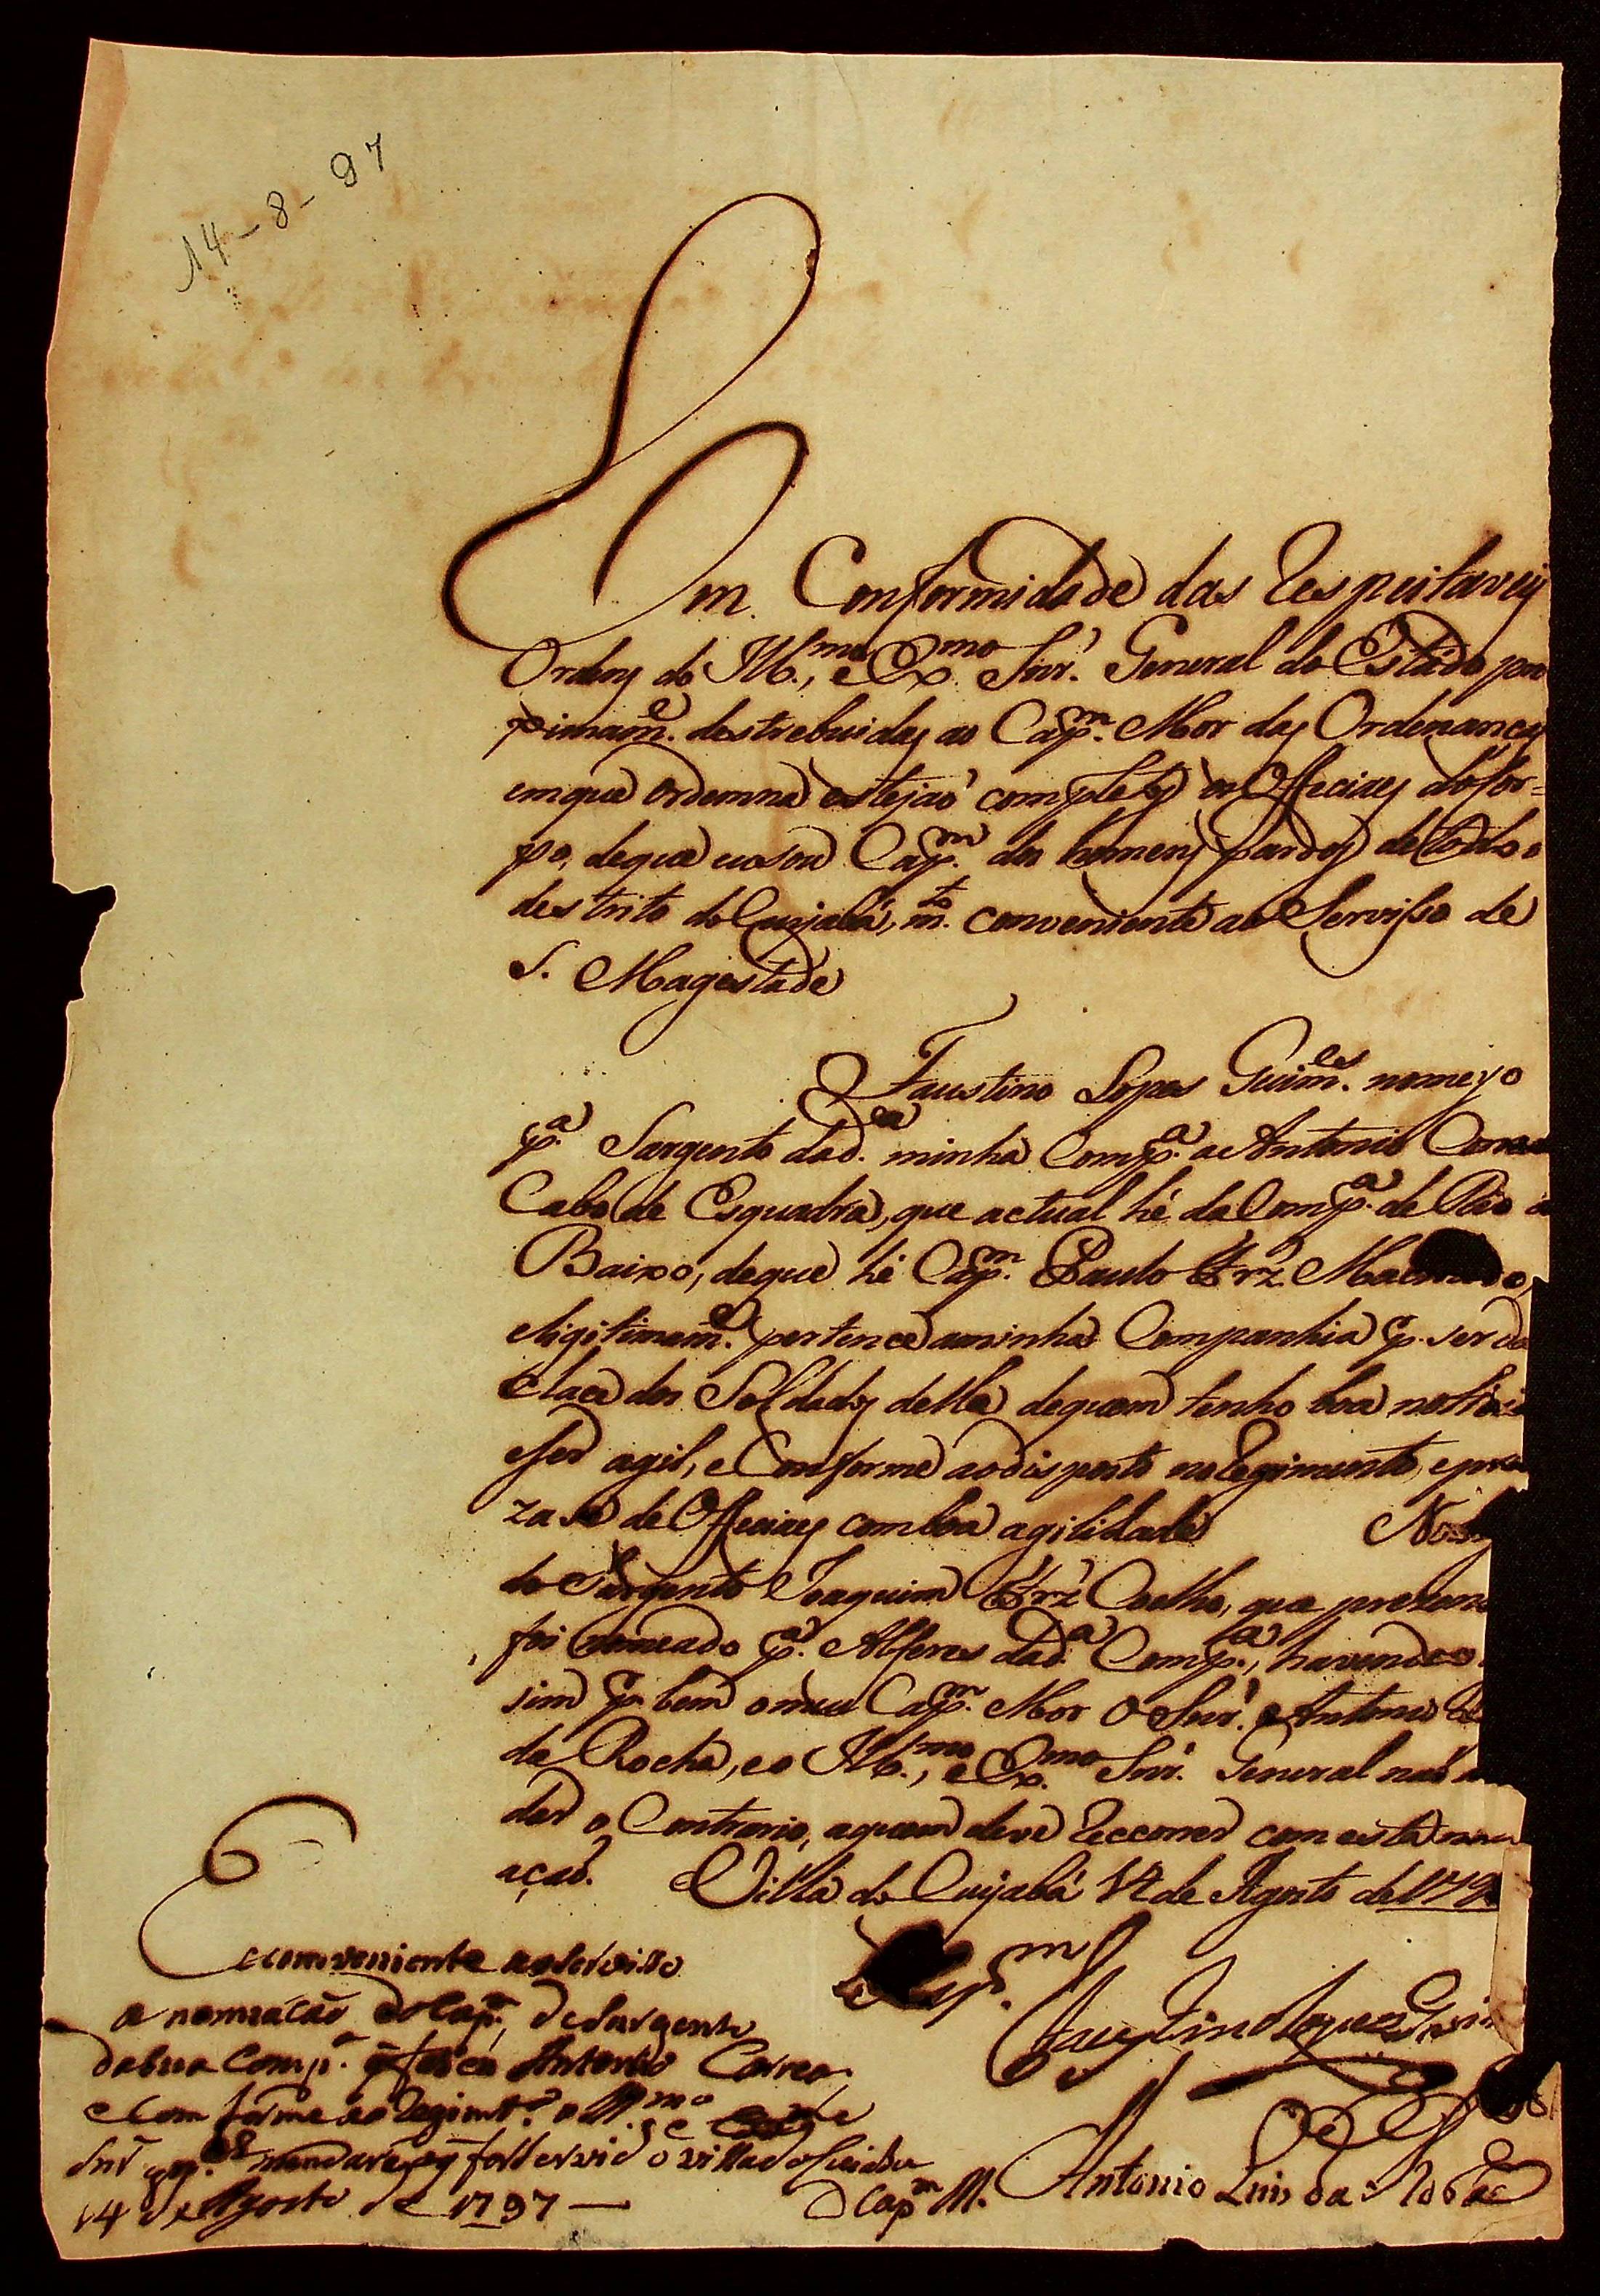 14-8-97
Em Conformidade das Respeitaveis
Ordens do Ill.mo, e Ex.mo Snr. General do Estado pro
ximam.e destrebuidas ao Cap.m Mor das Ordenanças
emque ordenna estejaõ completos os Officiaes do Cor=
po, deque eu sou Cap.m dos homens pardos de todo o
destrito do Cuyabá, m.to conveniente ao Serviso de
S. Magestade
Faustino Lopes Guim.es nomeyo
p.a Sargento da d.a minha Comp.a a Antonio Correa
Cabo de Esquadra, que actual hé da Comp.a de Rio a
Baixo, deque hé Cap.m Paulo Frz Machado,
eligitimam.e pertence aminha Companhia p. ser da
claça dos Soldados della dequem tenho boa noticia
eser agil, e Conforme ao disposto no Regimento, epre
za se de Officiaes com boa agilidade
do Sargento Joaquim Frz Coelho, que
foi nomeado p.a Alferes da d.a Comp.a, havendo
sim p. bem o meu Cap.m Mor o Snr. Antonio
da Rocha, eo Ill.mo, e Ex.mo Snr. General naõ
der o Contrario, aquem deve Reccorrer com esta
açaõ. Villa do Cuyabá 12 de Agosto de 179
Cap.m
Faustino Lopes Guim
E conveniente ao Serviso
a nomiacaõ do Cap.m, de Sargento
da sua Comp.a Antonio Correa
e com forme ao Regimt.o o Ill.mo e
Snr mandará o que for servido villa do Cuiaba
14 de Agosto de 1797 —
O Cap.m M. Antonio Luis da Rocha